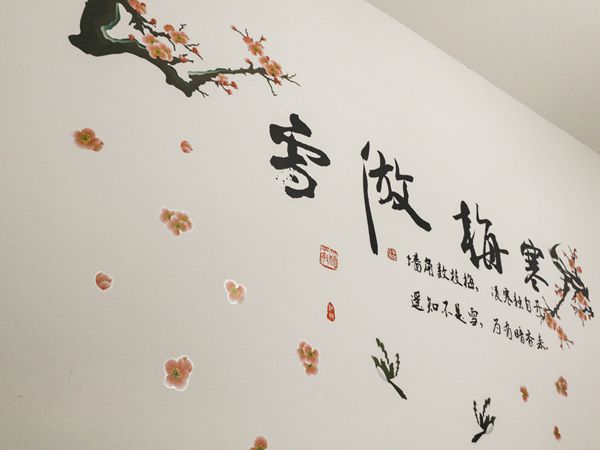 寒梅傲雪
墙角数枝梅，凌寒独自开
遥知不是雪，为有暗香来